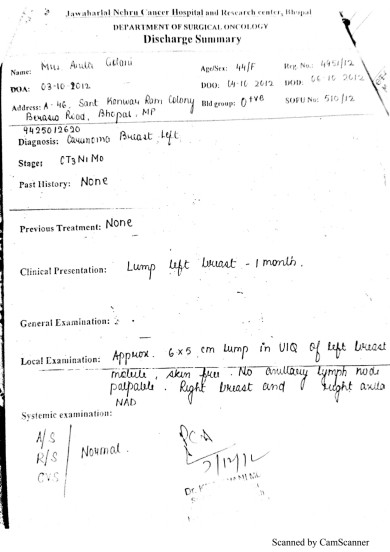 Jawaharlal Nehru Cancer Hospital and Research center, Bhopal
DEPARTMENT OF SURGICAL ONCOLOGY
Discharge Summary
Name: Mrs Anita Age/Sex: 44/F Reg. No.: 4451/12
DOA: 03-10-2012 DOO: 04-10-2012 DOD: 06-10-2012
Address: A-46, Sant Kanwar Ram Colony Bld group: O+ve SOFU No: 510/12
Berasia Road, Bhopal, MP
9425012620
Diagnosis: Carcinoma Breast Left
Stage: CT3N1M0
Past History: None
Previous Treatment: None
Clinical Presentation: Lump left breast - 1 month.
General Examination:
Local Examination: Approx. 6x5 cm lump in UIQ of left breast
mobile, skin free. No axillary lymph node
palpable. Right breast and right axilla
NAD
Systemic examination:
A/S
R/S Normal.
CVS
Dr.
Scanned by CamScanner